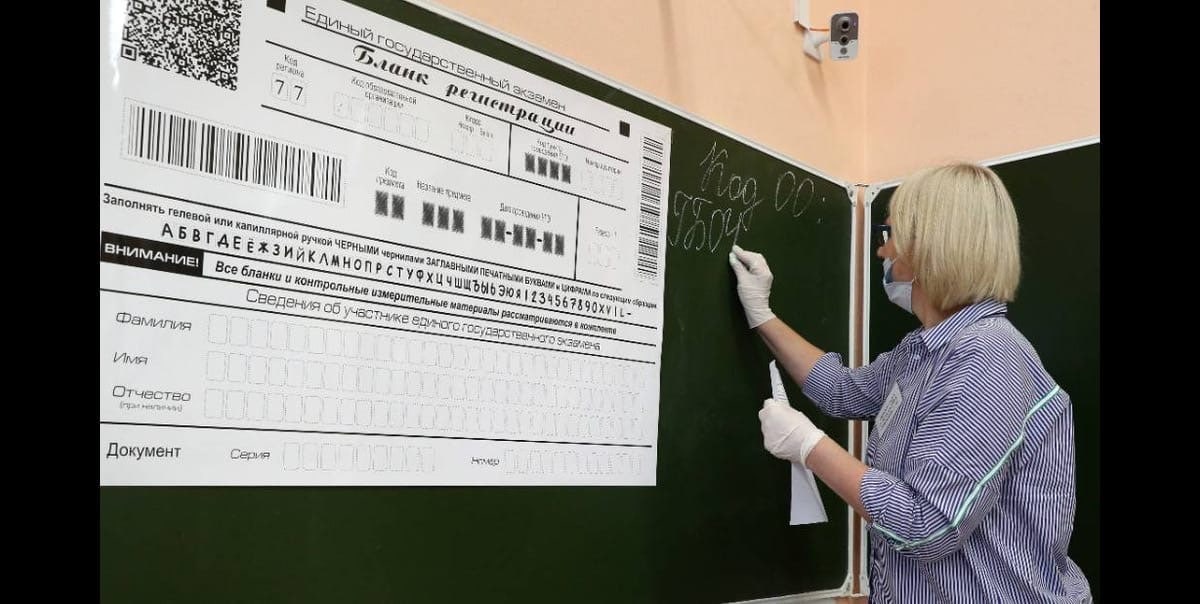 Единый государственный экзамен
Бланк регистрации
Код региона
77
Код образовательной организации
Класс
Номер Буква
Код предмета
Название предмета
Дата проведения ЕГЭ
Заполнять гелевой или капиллярной ручкой ЧЕРНЫМИ чернилами ЗАГЛАВНЫМИ ПЕЧАТНЫМИ БУКВАМИ и ЦИФРАМИ по следующим образцам
АБВГДЕЁЖЗИЙКЛМНОПРСТУФХЦЧШЩЪЫЬЭЮЯ1234567890XVIL-
ВНИМАНИЕ! Все бланки и контрольные измерительные материалы рассматриваются в комплекте
Сведения об участнике единого государственного экзамена
Фамилия
Имя
Отчество
(при наличии)
Документ Серия Номер
Код ОО:
ГБОУ